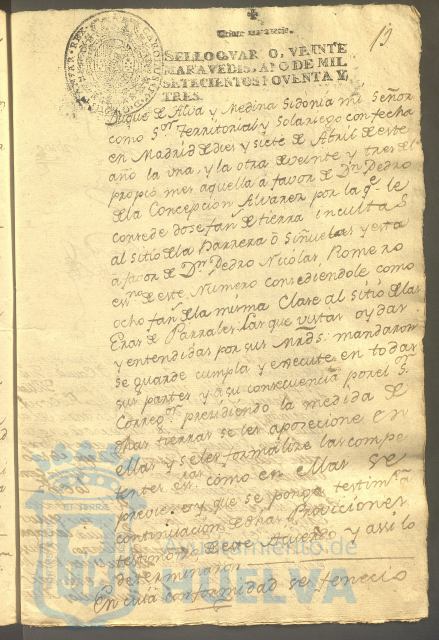 SELLO QVARTO, VEINTE
MARAVEDIS, AÑO DE MIL
SETECIENTOS NOVENTA Y
TRES.
Duque de Alva, y Medina Sidonia mi Señor
como Sor. Territorial y Solariego con fecha
en Madrid diez y siete de Abril de este
año la una, y la otra de veinte y tres del
propio mes aquella a favor de Dn. Pedro
de la Concepcion Alvarez por la qe. le
consede dose fans. de tierra inculta
al sitio de la Barrera ô Siñuelas, y esta
a favor de Dn. Pedro Nicolas Romero
esno. de este Numero consediendole como
ocho fans. de la misma Clase al sitio de las
Eras de Parrales las que vistas oydas
y entendidas por sus mrds. mandaron
se guarde cumpla y execute en todas
sus partes y a su consecuencia por el Sr.
Corregor. presidiendo la medida de
dhas tierras se les aposecione en
ellas y se les formalize las compe
tentes esras. como en ellas se
previene y que se ponga testimo. a
continuacion de dhas Provisiones
testimo. de este Acuerdo y assi lo
determinaron
En cuia conformidad se fenecio
Ayuntamiento de
HUELVA